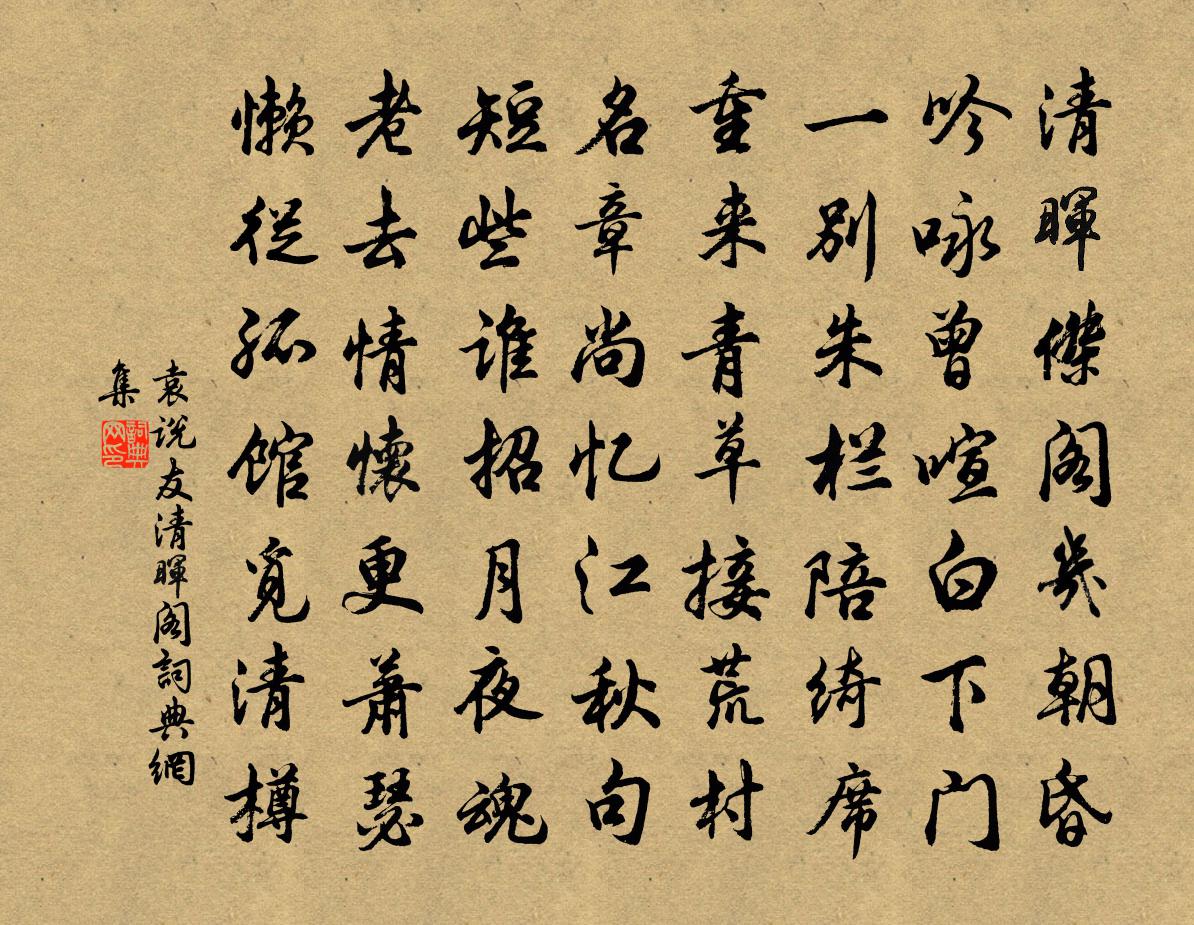 清暉傑阁幾朝昏
吟咏曾喧白下门
一别朱栏陪绮席
重来青草接荒村
名章尚忆江秋句
短些谁招月夜魂
老去情懷更萧瑟
懒從孤館觅清樽
袁说友清暉阁詞典網
集
詞典
网印